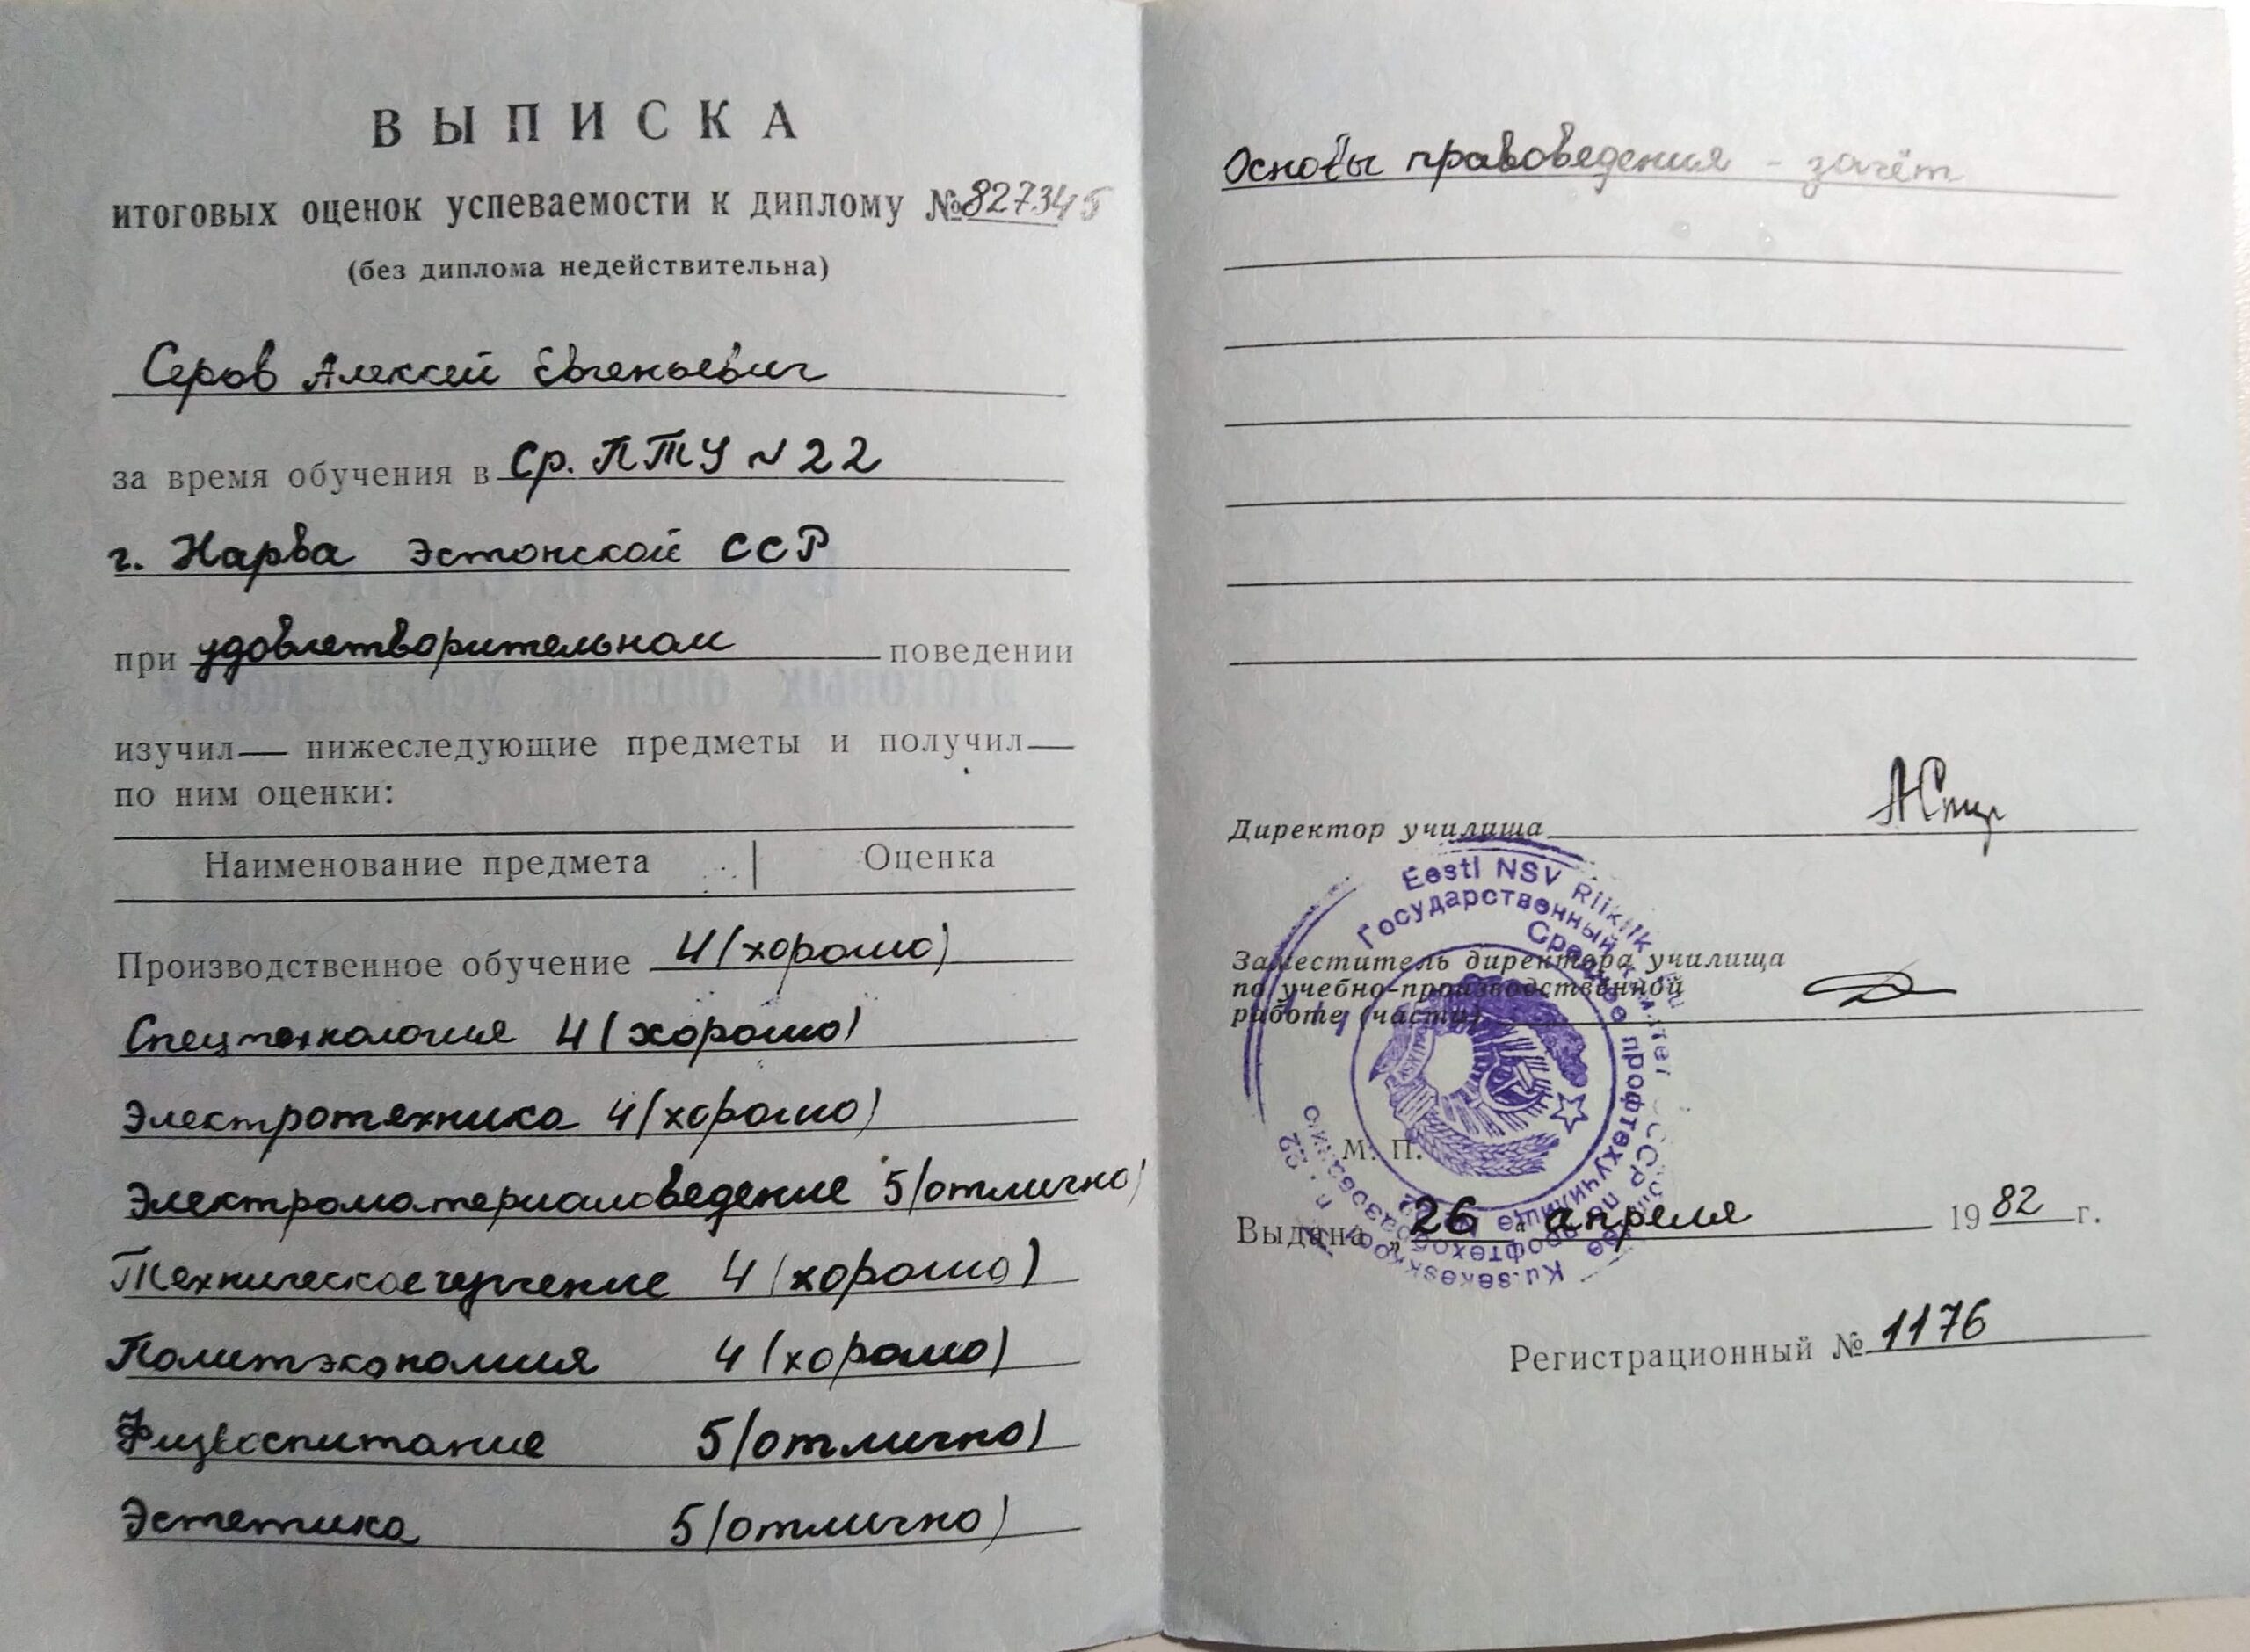 ВЫПИСКА
итоговых оценок успеваемости к диплому № 827345
(без диплома недействительна)
Серов Алексей Евгеньевич
за время обучения в Ср. ПТУ N 22
г. Нарва Эстонской ССР
при удовлетворительном поведении
изучил— нижеследующие предметы и получил—
по ним оценки:
Наименование предмета | Оценка
Производственное обучение 4 (хорошо)
Спецтехнология 4 (хорошо)
Электротехника 4 (хорошо)
Электроматериаловедение 5 (отлично)
Техническое черчение 4 (хорошо)
Политэкономия 4 (хорошо)
Физвоспитание 5 (отлично)
Эстетика 5 (отлично)
Основы правоведения - зачёт
Директор училища
Eesti NSV Riiklik
Государственный
Среднее профтехучилище
Заместитель директора училища
по учебно-производственной
работе (части)
М. П.
Выдана „26" апреля 1982 г.
Регистрационный № 1176